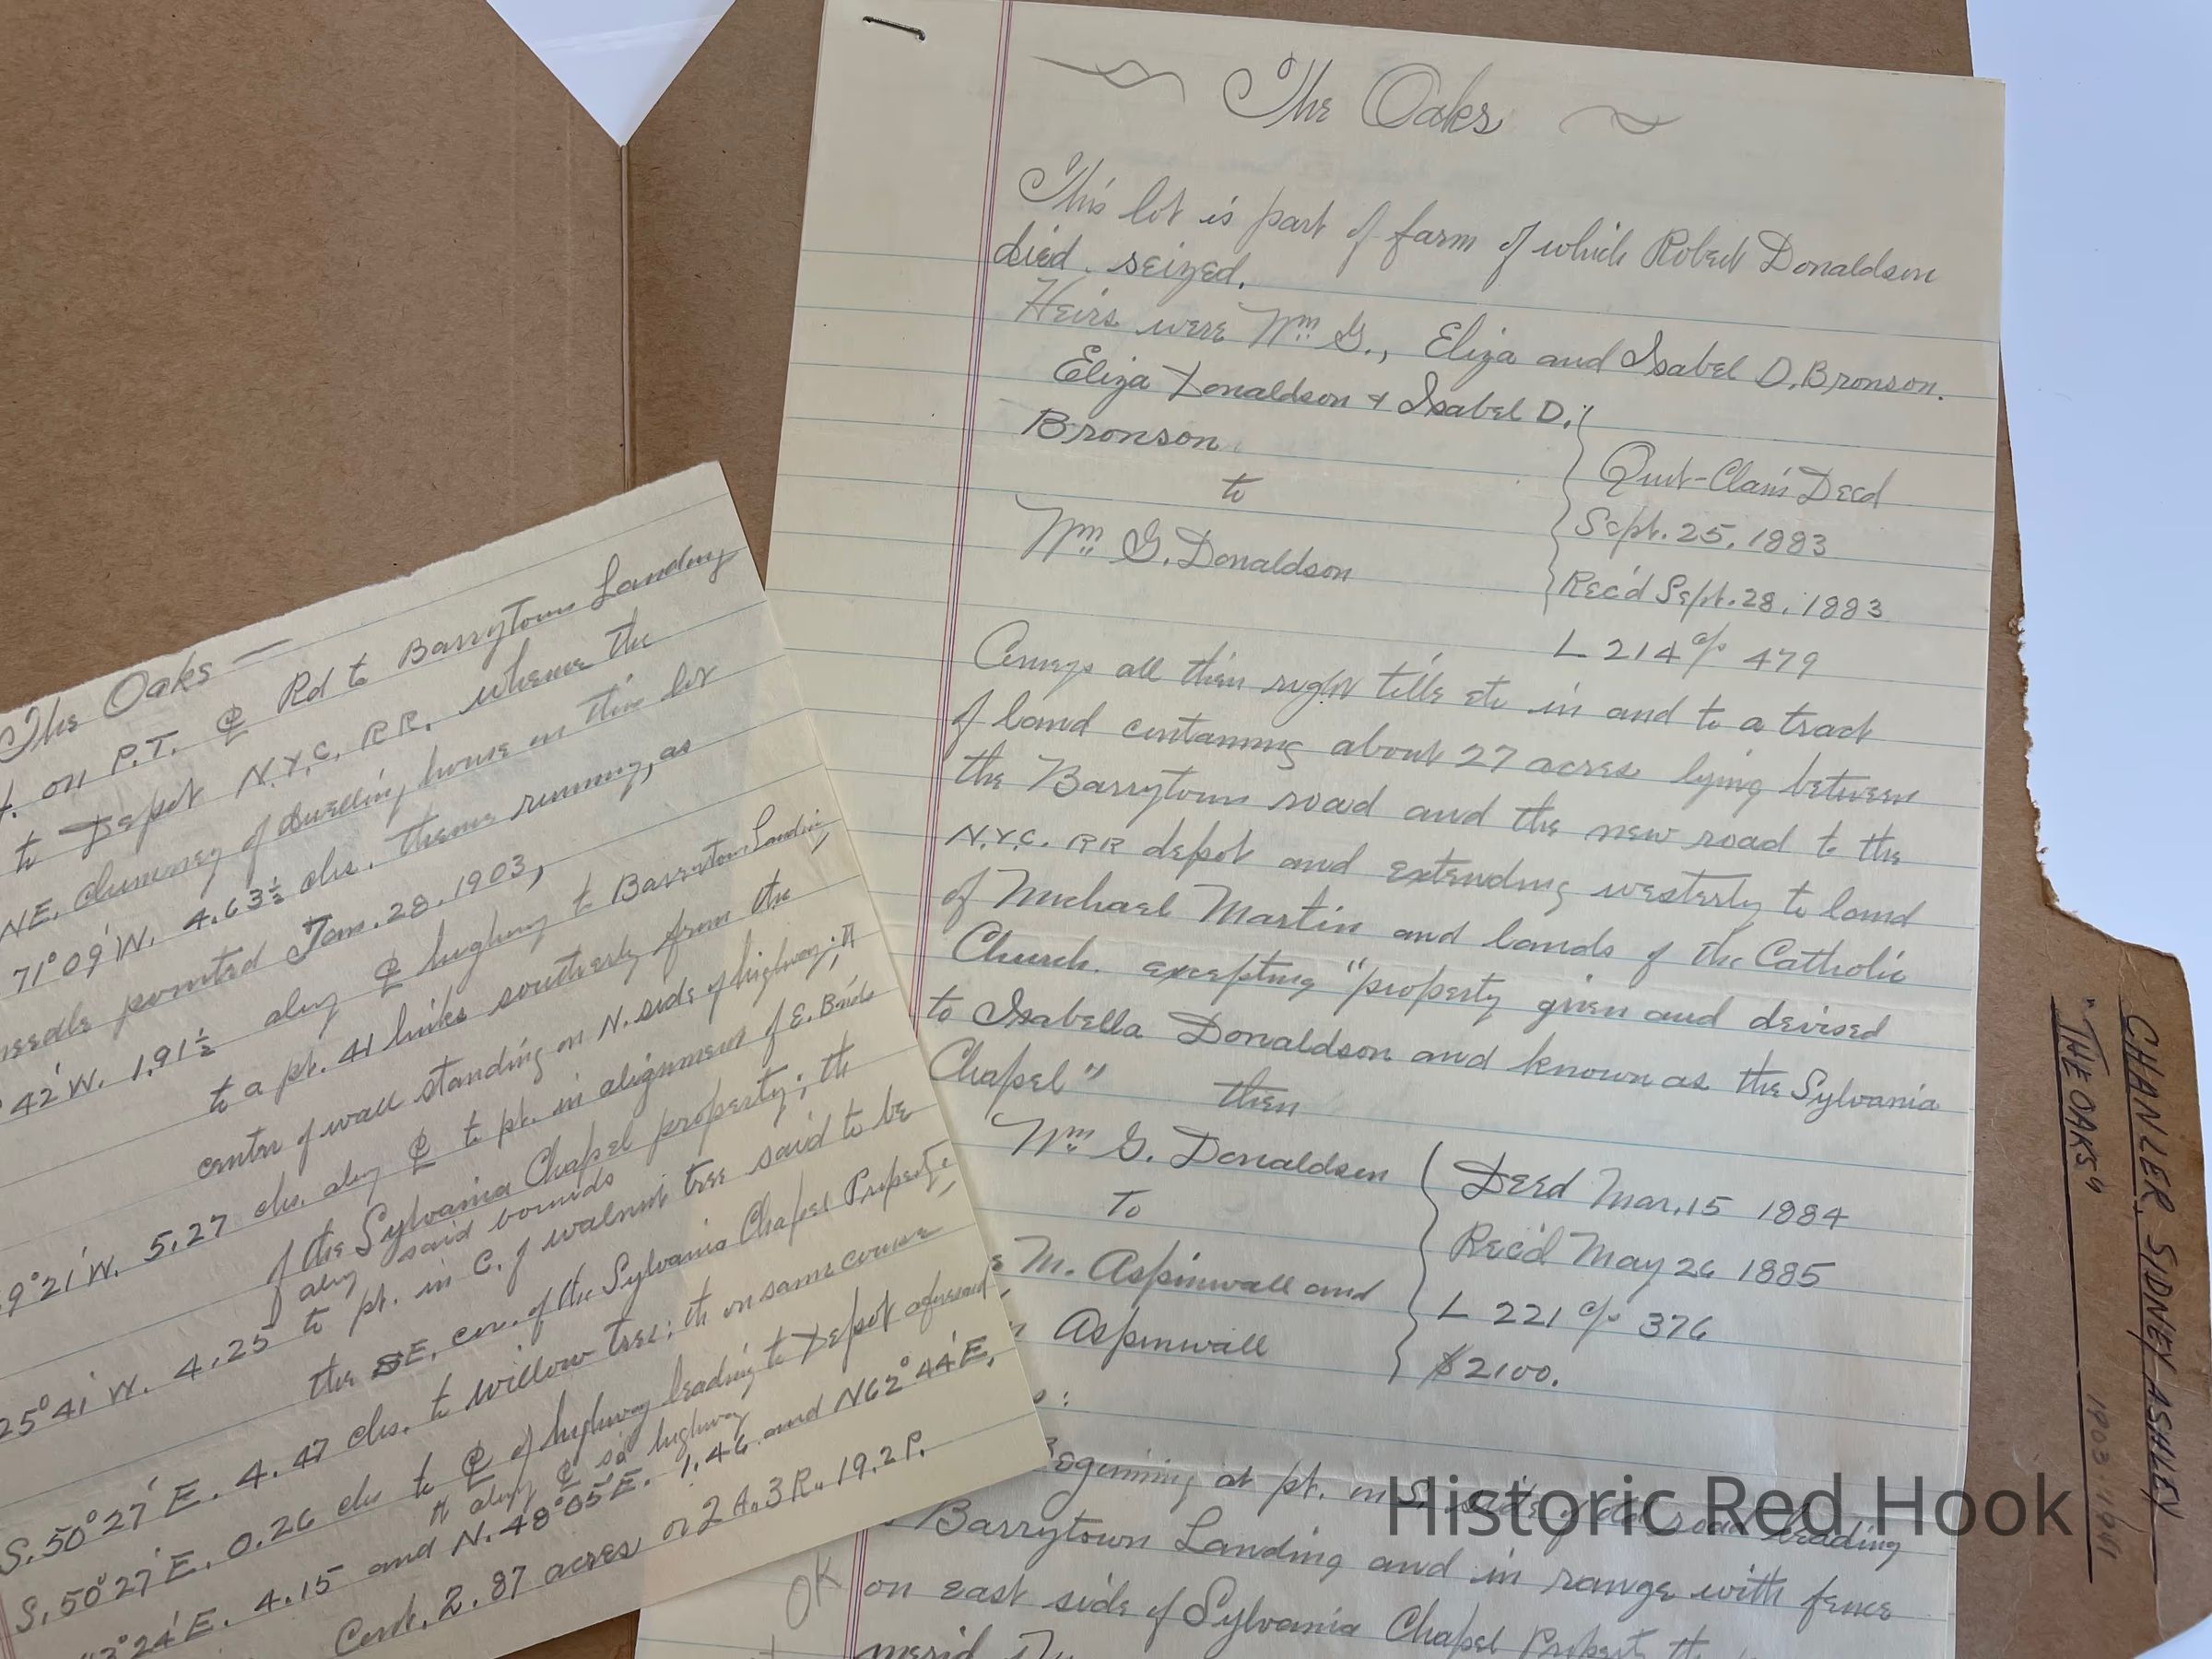 The Oaks
This lot is part of farm of which Robert Donaldson
died seized.
Heirs were Wm G., Eliza and Isabel D. Bronson.
Eliza Donaldson & Isabel D.
Bronson
to
Wm G. Donaldson
Quit-Claim Deed
Sept. 25, 1883
Rec'd Sept. 28, 1883
L 214 c/o 479
Conveys all their right title etc in and to a tract
of land containing about 27 acres lying between
the Barrytown road and the new road to the
N.Y.C. RR depot and extending westerly to land
of Michael Martin and lands of the Catholic
Church. excepting "property given and devised
to Isabella Donaldson and known as the Sylvania
Chapel" then
Wm G. Donaldson
To
M. Aspinwall and
Aspinwall
Deed Mar. 15 1884
Rec'd May 26 1885
L 221 c/o 376
$2100.
Beginning at pt. in S. side of old road leading
Barrytown Landing and in range with fence
OK
on east side of Sylvania Chapel Property
The Oaks —
on P.T. ℄ Rd to Barrytown Landing
to Depot N.Y.C. RR. whence the
NE. Chimney of dwelling house on this lot
71°09'W. 4.63½ chs. thence running, as
needle pointed Jan. 28. 1903,
42'W. 1.91½ along ℄ highway to Barrytown Landing,
to a pt. 41 links southerly from the
center of wall standing on N. side of highway; th
9°21'W. 5.27 chs. along ℄ to pt. in alignment of E. Bnds
of the Sylvania Chapel property; th
along said bounds
25°41'W. 4.25 to pt. in C. of walnut tree said to be
the SE. cor. of the Sylvania Chapel Property;
S. 50°27'E. 4.47 chs. to willow tree; th on same course
S. 50°27'E. 0.26 chs to ℄ of highway leading to Depot aforesaid,
th along ℄ sd highway
3°24'E. 4.15 and N. 48°05'E. 1.46 and N62°44'E.
Cont. 2.87 acres or 2A. 3R. 19.2P.
CHANLER, SIDNEY ASHLEY
"THE OAKS"
Historic Red Hook